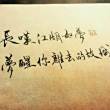 長嘆江湖如
夢醒你離去的故